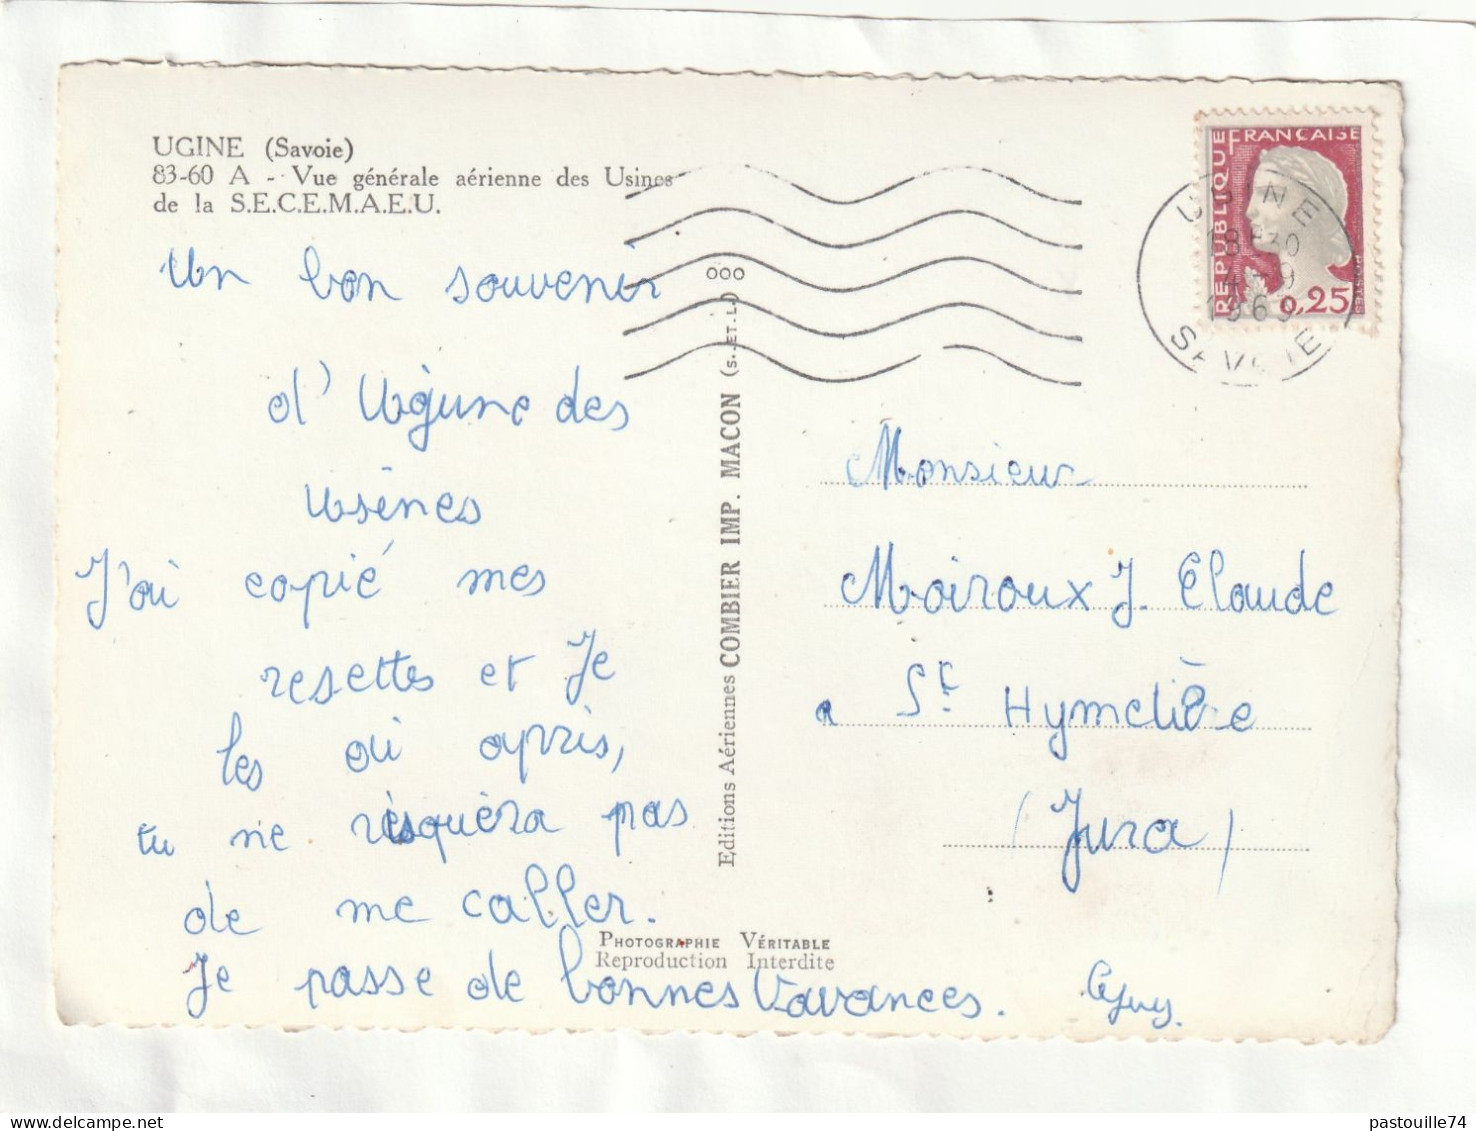 UGINE (Savoie)
83-60 A - Vue générale aérienne des Usines
de la S.E.C.E.M.A.E.U.
Un bon souvenir
d' Ugine des
Usines
J'ai copié mes
resettes et Je
les ai apris,
tu ne risquera pas
de me caller.
Je passe de bonnes Vavances.
Editions Aériennes COMBIER IMP. MACON (S.-ET-L.)
ooo
PHOTOGRAPHIE VÉRITABLE
Reproduction Interdite
REPUBLIQUE FRANÇAISE
POSTES
0,25
UGINE
18H30
4-9
196
SAVOIE
Monsieur
Moiroux J. Claude
a St. Hymetière
(Jura)
pastouille74